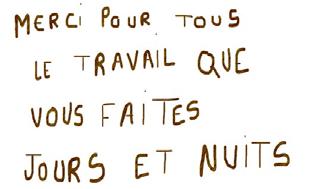 MERCi POUR TOUS
LE TRAVAIL QUE
VOUS FAITES
JOURS ET NUiTS